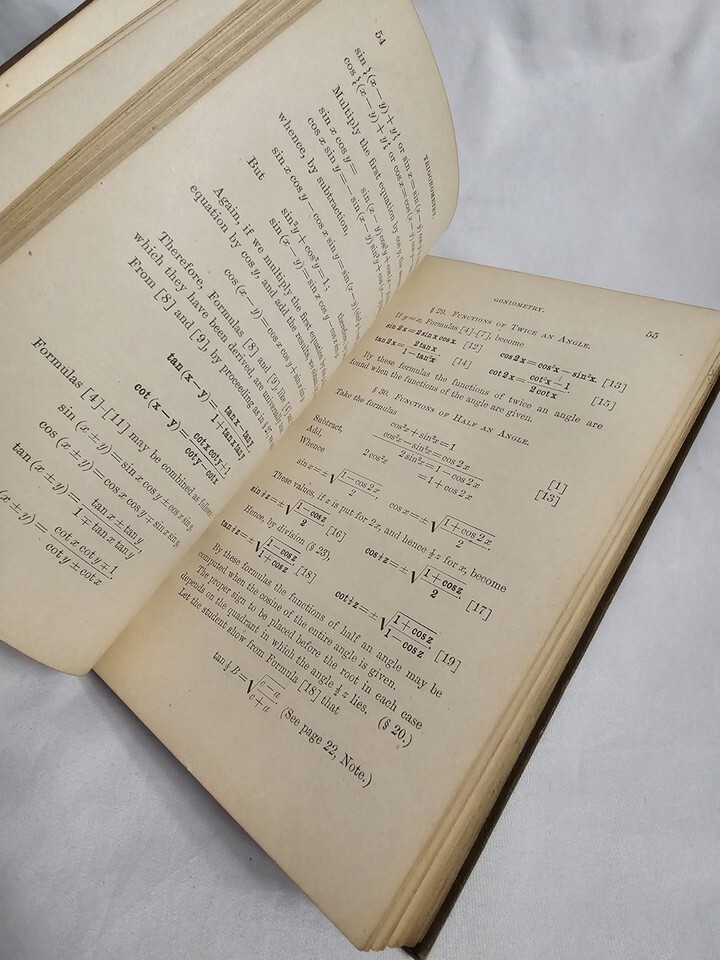 54
TRIGONOMETRY.
sin {(x − y) + y} or sin x = sin (x − y)
cos {(x − y) + y} or cos x = cos (x − y)
Multiply the first equation by cos y,
sin x cos y = sin (x − y) cos²y + cos
cos x sin y = − sin (x − y) sin²y + cos
whence, by subtraction,
sin x cos y − cos x sin y = sin (x − y)
But
sin²y + cos²y = 1;
sin (x − y) = sin x cos y − cos
Again, if we multiply the first equation
equation by cos y, and add the results, we
cos (x − y) = cos x cos y + sin x
Therefore, Formulas [8] and [9], like
which they have been derived, are universally
From [8] and [9], by proceeding as in
tan (x − y) = tan x − tan y / 1 + tan x tan y
cot (x − y) = cot x cot y + 1 / cot y − cot x
Formulas [4]–[11] may be combined as follows:
sin (x ± y) = sin x cos y ± cos x sin y,
cos (x ± y) = cos x cos y ∓ sin x sin y,
tan (x ± y) = tan x ± tan y / 1 ∓ tan x tan y,
(x ± y) = cot x cot y ∓ 1 / cot y ± cot x
GONIOMETRY.
55
§ 29. FUNCTIONS OF TWICE AN ANGLE.
If y = x, Formulas [4]–[7], become
sin 2x = 2 sin x cos x. [12] cos 2x = cos²x − sin²x. [13]
tan 2x = 2 tan x / 1 − tan²x. [14] cot 2x = cot²x − 1 / 2 cot x. [15]
By these formulas the functions of twice an angle are
found when the functions of the angle are given.
§ 30. FUNCTIONS OF HALF AN ANGLE.
Take the formulas
cos²x + sin²x = 1 [1]
cos²x − sin²x = cos 2x [13]
Subtract, 2 sin²x = 1 − cos 2x
Add, 2 cos²x = 1 + cos 2x
Whence
sin x = ± √(1 − cos 2x / 2) cos x = ± √(1 + cos 2x / 2).
These values, if z is put for 2x, and hence ½ z for x, become
sin ½ z = ± √(1 − cos z / 2). [16] cos ½ z = ± √(1 + cos z / 2). [17]
Hence, by division (§ 23),
tan ½ z = ± √(1 − cos z / 1 + cos z). [18] cot ½ z = ± √(1 + cos z / 1 − cos z). [19]
By these formulas the functions of half an angle may be
computed when the cosine of the entire angle is given.
The proper sign to be placed before the root in each case
depends on the quadrant in which the angle ½ z lies. (§ 20.)
Let the student show from Formula [18] that
tan ½ B = √(c − a / c + a). (See page 22, Note.)